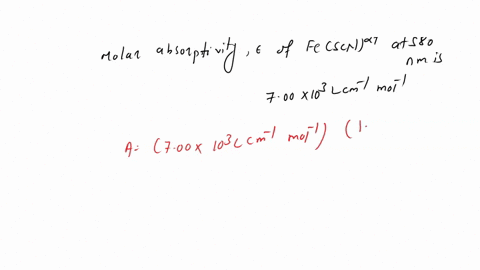 molar absorptivity, ε of Fe(SCN)²⁺ at 580
nm is
7.00 × 10³ L cm⁻¹ mol⁻¹
A = (7.00 × 10³ L cm⁻¹ mol⁻¹) (1.